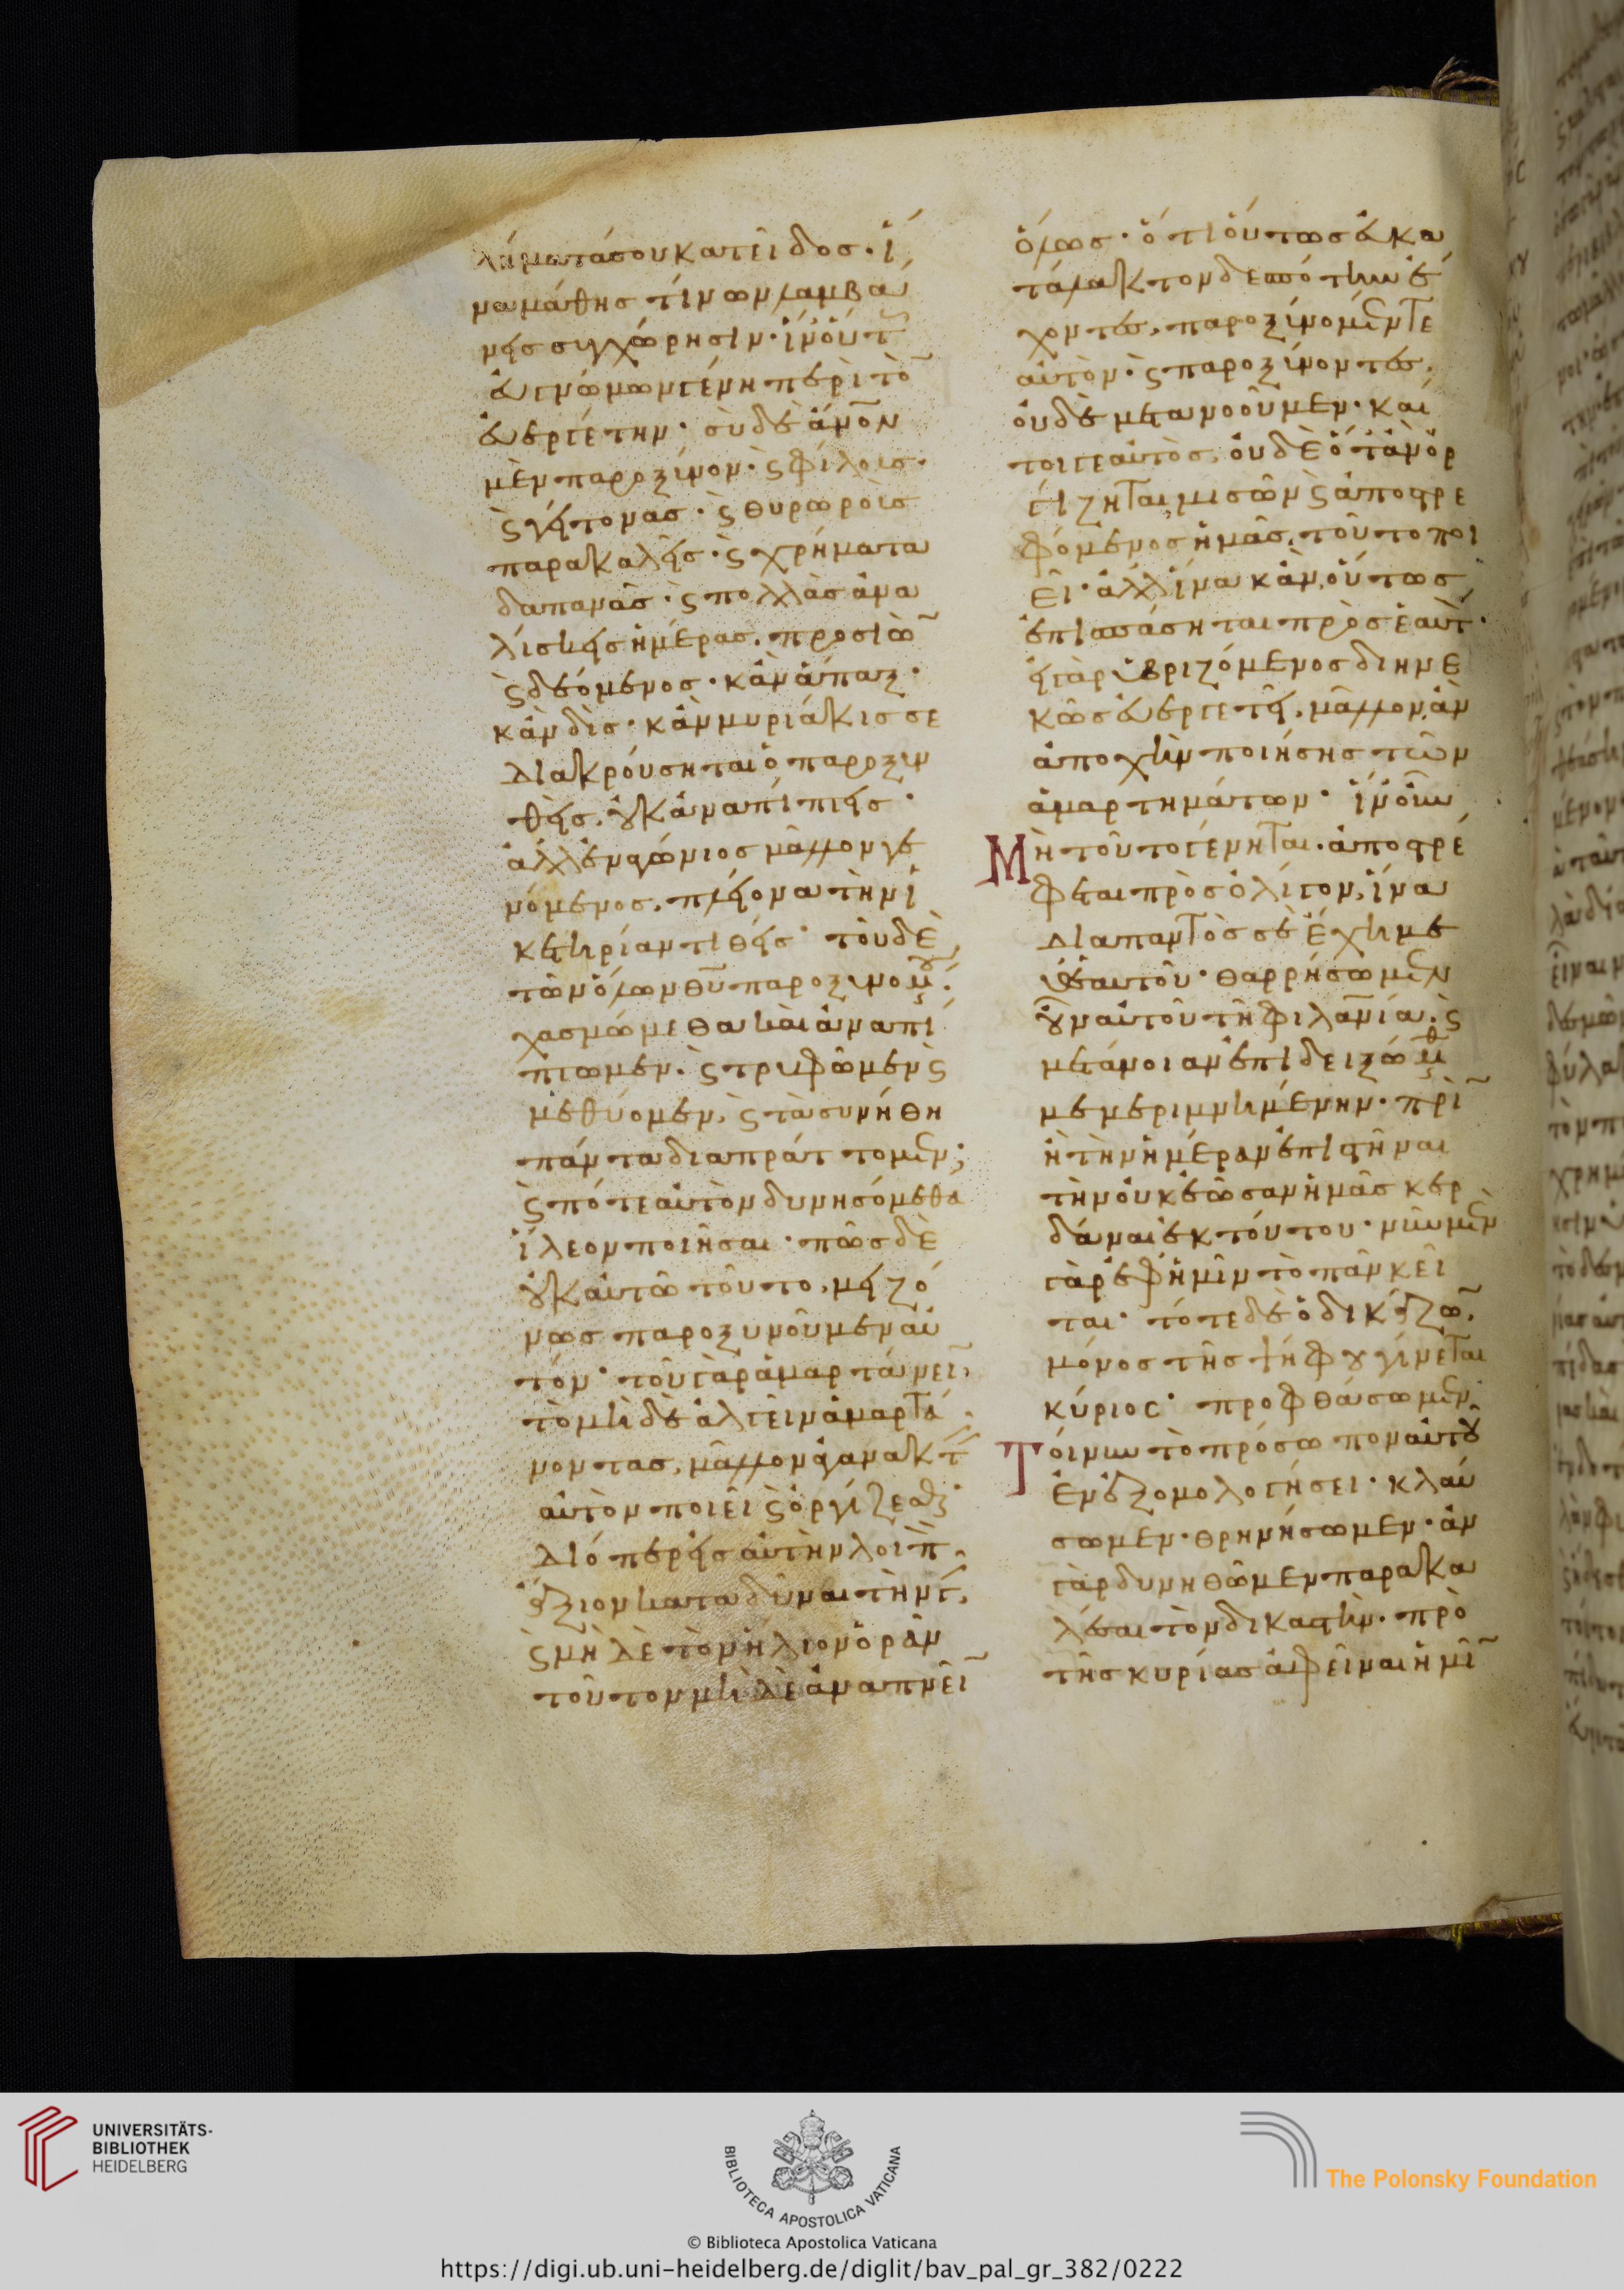 λήματά σου κατεῖδος· ἵ
να μάθης τίνων λαμβά
νεις συγχώρησιν· ἵν' οὕτ
εὐγνώμων γένη περὶ τὸ̄
εὐεργέτην· σὺ δὲ ἄν̄ον
μὲν παροξύνων· ϛ φίλοις·
ϛ γείτονας· ϛ θυρωροῖς
παρακαλεῖς· ϛ χρήματα
δαπανᾶς· ϛ πολλὰς ἀνα
λίσκεις ἡμέρας. προσιὼ̄
ϛ δεόμενος· κἂν ἅπαξ·
κἂν δὶς· κἂν μυριάκις σε
διακρούσηται ὁ παροξυν
θεὶς. οὐκ ἀναπίπτεις·
ἀλλ' ἐναγώνιος μᾶλλον γε
νόμενος. πλείονα τὴν ἱ
κετηρίαν τιθεῖς· τοῦ δὲ
τῶν ὅλων θῦ παροξυνομου.
χασμώμεθα καὶ ἀναπί
πτωμεν. ϛ τρυφῶμεν ϛ
μεθύομεν, ϛ τὰ συνήθη
πάντα διαπράττομεν;
ϛ πότε αὐτὸν δυνησόμεθα
ἵλεον ποιῆσαι· πῶς δὲ
οὐκ αὐτῶ τοῦτο, μειζό
νως παροξυνοῦμεν αὐ
τόν· τοῦ γὰρ ἁμαρτάνεῑ,
τὸ μὴ δὲ ἀλγεῖν ἁμαρτά
νοντας, μᾶλλον ἀγανακτ
αὐτὸν ποιεῖ ϛ ὀργίζεσθ
διόπερ εἰς αὐτὴν λοιπ
ἄξιον καταδῦναι τὴν γ,
ϛ μὴ δὲ τὸν ἥλιον ὁρᾶν
τοῦτον μὴ δὲ ἀναπνεῖ̄
ὅλως· ὅτι οὕτως εὐκα
τάλακτον δεσπότην ἔ
χοντες, παροξύνομέν τε
αὐτὸν· ϛ παροξύνοντες,
οὐδὲ μετανοοῦμεν· καί
τοι γε αὐτὸς, οὐδὲ ὅταν ὀρ
γίζηται, μισῶν ϛ ἀποστρε
φόμενος ἡμᾶς, τοῦτο ποι
εῖ· ἀλλ' ἵνα κἂν οὕτως
ἐπισπάσηται πρὸς ἑαυτ·
εἰ γὰρ ὑβριζόμενος διηνε
κῶς εὐεργετεῖ, μᾶλλον ἂν
ἀποχὴν ποιήσης τῶν
ἁμαρτημάτων· ἵν' οὖν
Μὴ τοῦτο γένηται. ἀποστρέ
φεται πρὸς ὀλίγον, ἵνα
διαπαντὸς σὲ ἔχη με
θ' ἑαυτοῦ· θαρρήσωμεν
οὖν αὐτοῦ τῆ φιλᾱνία. ϛ
μετάνοιαν ἐπιδειξώμθ
μεμεριμνημένην· πρὶ̄
ἢ τὴν ἡμέραν ἐπιστῆναι
τὴν οὐκ ἐῶσαν ἡμᾶς κερ
δάναι ἐκ τούτου· νῦν μὲν
γὰρ ἐφ' ἡμῖν τὸ πᾶν κεῖ
ται· τότε δὲ ὁ δικάζω̄.
μόνος τῆς ψήφου γίνεται
κύριος· προφθάσωμεν
Τοίνυν τὸ πρόσωπον αὐτοῦ
ἐν ἐξομολογήσει· κλαύ
σωμεν· θρηνήσωμεν· ἂν
γὰρ δυνηθῶμεν παρακα
λέσαι τὸν δικαστὴν. πρὸ
τῆς κυρίας ἀφεῖναι ἡμῖ̄
UNIVERSITÄTS-
BIBLIOTHEK
HEIDELBERG
BIBLIOTECA APOSTOLICA VATICANA
The Polonsky Foundation
© Biblioteca Apostolica Vaticana
https://digi.ub.uni-heidelberg.de/diglit/bav_pal_gr_382/0222